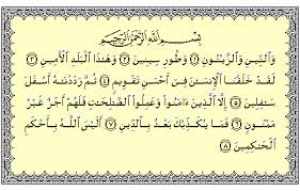 بِسْمِ اللَّهِ الرَّحْمَٰنِ الرَّحِيمِ
وَٱلتِّينِ وَٱلزَّيْتُونِ ۝١ وَطُورِ سِينِينَ ۝٢ وَهَٰذَا ٱلْبَلَدِ ٱلْأَمِينِ ۝٣
لَقَدْ خَلَقْنَا ٱلْإِنسَٰنَ فِىٓ أَحْسَنِ تَقْوِيمٍ ۝٤ ثُمَّ رَدَدْنَٰهُ أَسْفَلَ
سَٰفِلِينَ ۝٥ إِلَّا ٱلَّذِينَ ءَامَنُوا۟ وَعَمِلُوا۟ ٱلصَّٰلِحَٰتِ فَلَهُمْ أَجْرٌ غَيْرُ
مَمْنُونٍ ۝٦ فَمَا يُكَذِّبُكَ بَعْدُ بِٱلدِّينِ ۝٧ أَلَيْسَ ٱللَّهُ بِأَحْكَمِ
ٱلْحَٰكِمِينَ ۝٨